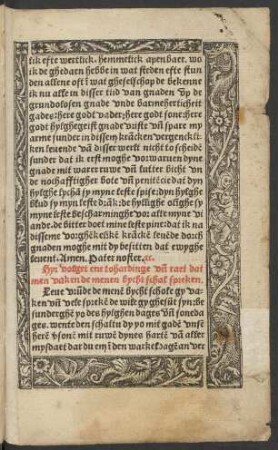 lik efte wertlick. hemmelick apenbaer. wo
ik de ghedaen hebbe in wat steden efte stun
den allene oft vā wat gheselschop de bekenne
ik nu alle in disser tiid van gnaden Vp de
grundolosen gnade vnde barmeherticheit
gades: here godt vader: here godt sone: here
godt hylghegeist gnade
arme sunder in dissen krācken vorgenckli
ken leuende vā disser werlt nicht to scheidē
sunder dat ik erst moghe vorwaruen dyne
gnade mit warer ruwe vñ lutter bicht vn
de nochafftigher bote vñ penitēcie dat dyn
hylghe lychā sy myne leste spise: dyn hylghe
blud sy myn leste drāk: de hyllighe olighe sy
myne leste bescharminghe vor alle myne vi
ande. de bitter doet mine leste pine: dat ik na
disseme vorghēkelikē krākē leuēde dorch
gnaden moghe mit dy besitten dat ewyghe
leuent. Amen. Pater noster. ꝛc.
Hyr volget ene tohardinge vñ raet dat
men vakē in de menen bycht schal spreken.
Leue vrūde de menē bycht schole gy va
ken vñ vele sprekē de wile gy ghesūt syn: be
sunderghē yo des hylghen daghes vñ sonda
ges. wente den schaltu dy yo mit gade vnse
herē vsonē mit ruwē dynes hartē vā alle
mysdaet dat du en ī den warkel dagē an ver